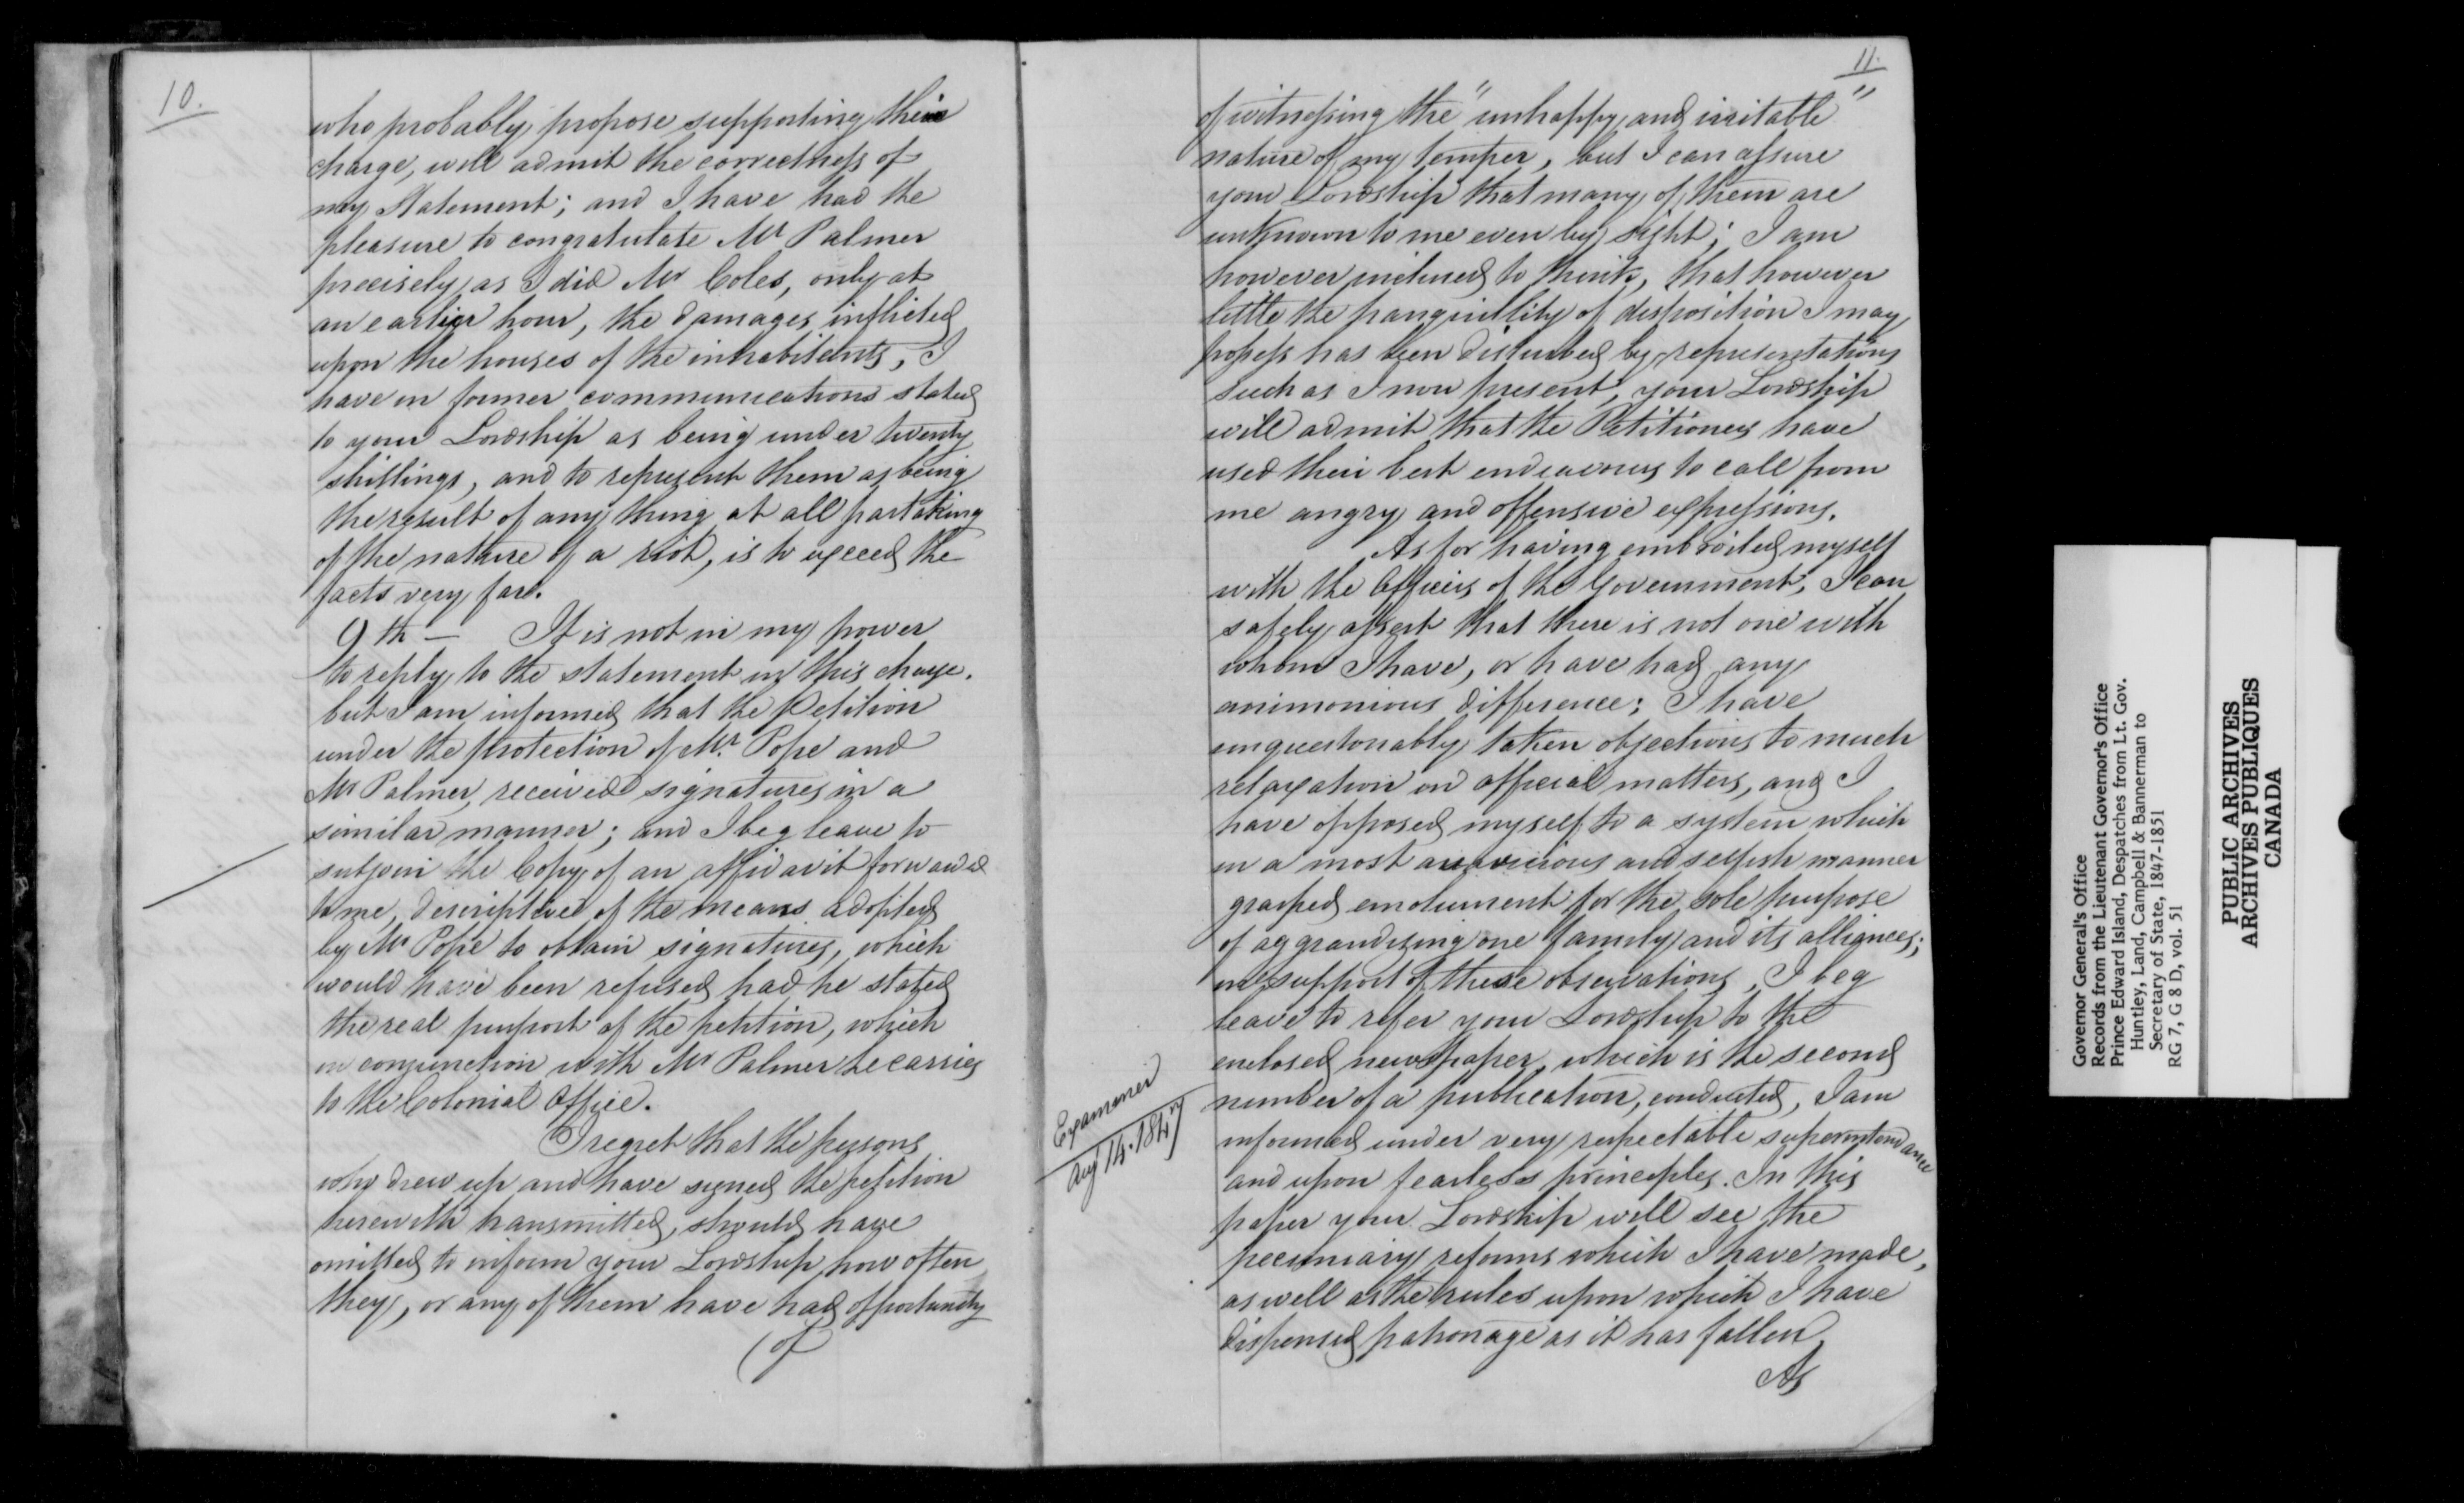 10.
who probably propose supporting their
charge, will admit the correctness of
my Statement; and I have had the
pleasure to congratulate Mr Palmer
precisely as I did Mr Coles, only at
an earlier hour, the damages inflicted
upon the houses of the inhabitants, I
have in former communications stated
to your Lordship as being under twenty
shillings, and to represent them as being
the result of any thing at all partaking
of the nature of a riot, is to exceed the
facts very far.
9th — It is not in my power
to reply to the statement in this charge.
but I am informed that the Petition
under the protection of Mr. Pope and
Mr Palmer, received signatures in a
similar manner; and I beg leave to
subjoin the Copy of an affidavit forwarded
to me, descriptive of the means adopted
by Mr Pope to obtain signatures, which
would have been refused had he stated
the real purport of the petition, which
in conjunction with Mr Palmer he carries
to the Colonial Office.
I regret that the persons
who drew up and have signed the petition
herewith transmitted, should have
omitted to inform your Lordship how often
they, or any of them have had opportunity
(of
11.
of witnessing the "unhappy and irritable"
nature of my temper, but I can assure
your Lordship that many of them are
unknown to me even by sight; I am
however inclined to think, that however
little the tranquillity of disposition I may
possess has been disturbed by representations
such as I now present, your Lordship
will admit that the Petitioners have
used their best endeavours to call from
me angry and offensive expressions.
As for having embroiled myself
with the Officers of the Government, I can
safely assert that there is not one with
whom I have, or have had any
acrimonious difference; I have
unquestionably taken objections to much
relaxation in official matters, and I
have opposed myself to a system which
in a most avaricious and selfish manner
grasped emolument for the sole purpose
of aggrandizing one family and its alliances;
in support of these observations, I beg
leave to refer your Lordship to the
enclosed newspaper, which is the second
number of a publication, conducted, I am
informed under very respectable superintendance
and upon fearless principles. In this
paper your Lordship will see the
pecuniary reforms which I have made,
as well as the rules upon which I have
dispensed patronage as it has fallen,
As
Examiner
Aug 14. 1847
Governor General's Office
Records from the Lieutenant Governor's Office
Prince Edward Island, Despatches from Lt. Gov.
Huntley, Land, Campbell & Bannerman to
Secretary of State, 1847-1851
RG 7, G 8 D, vol. 51
PUBLIC ARCHIVES
ARCHIVES PUBLIQUES
CANADA